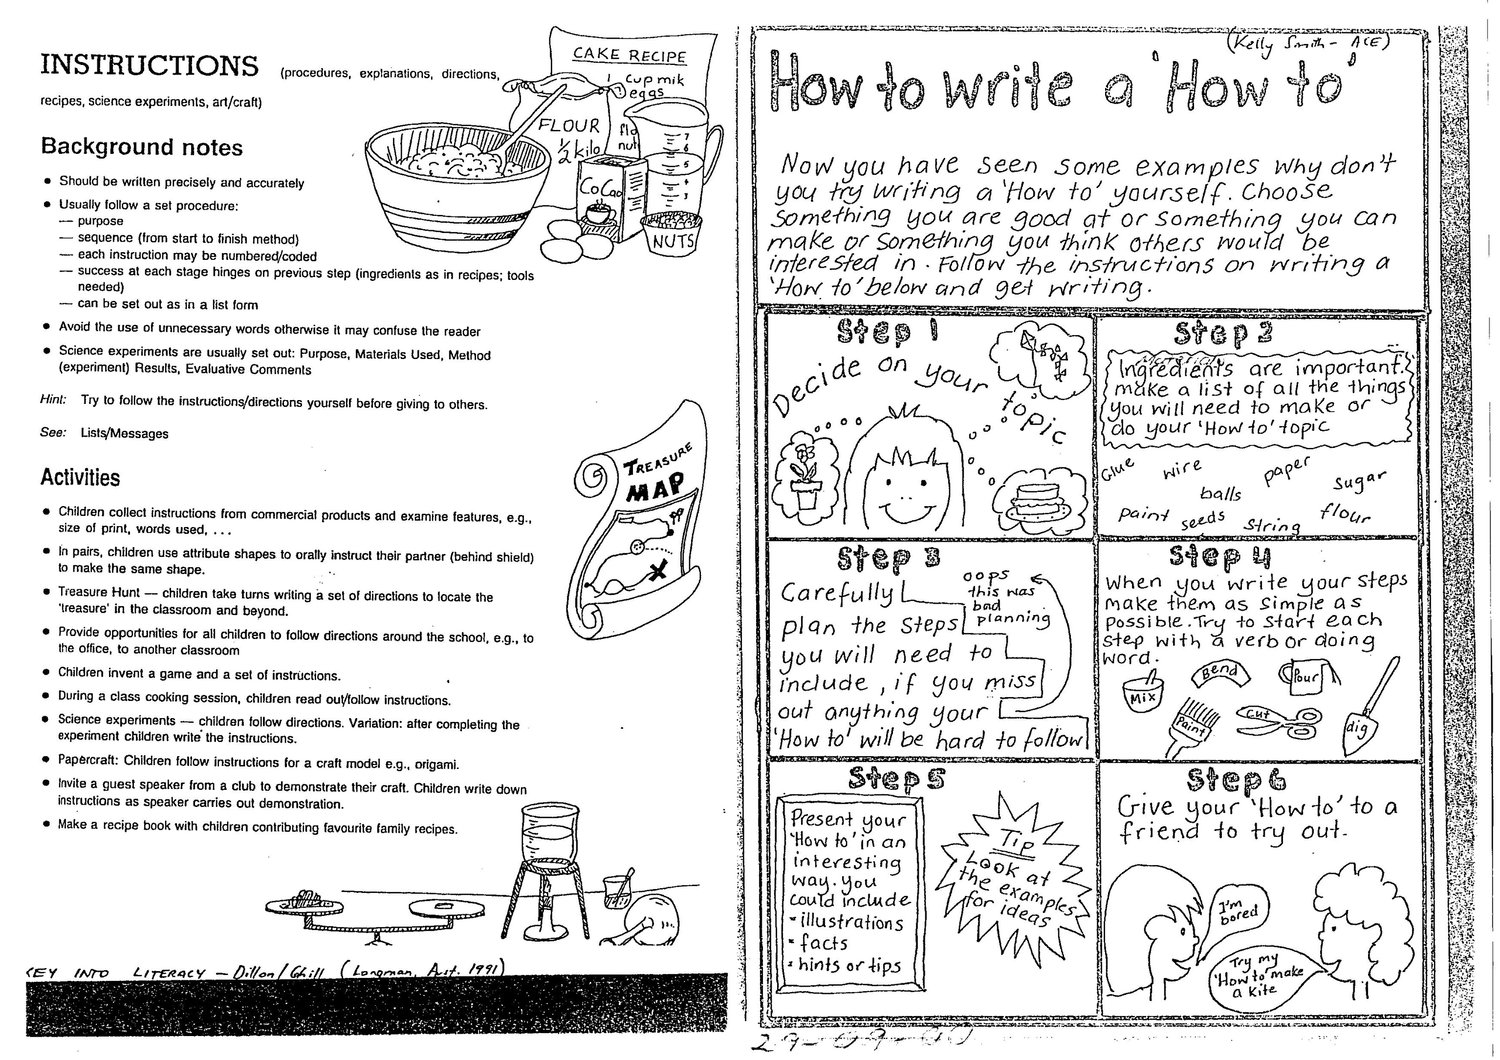 INSTRUCTIONS (procedures, explanations, directions,
recipes, science experiments, art/craft)
CAKE RECIPE
1 cup mik
2 eggs
flo
nut
FLOUR
½ kilo
7
6
5
CoCao
NUTS
Background notes
• Should be written precisely and accurately
• Usually follow a set procedure:
— purpose
— sequence (from start to finish method)
— each instruction may be numbered/coded
— success at each stage hinges on previous step (ingredients as in recipes; tools
needed)
— can be set out as in a list form
• Avoid the use of unnecessary words otherwise it may confuse the reader
• Science experiments are usually set out: Purpose, Materials Used, Method
(experiment) Results, Evaluative Comments
Hint: Try to follow the instructions/directions yourself before giving to others.
See: Lists/Messages
TREASURE
MAP
Activities
• Children collect instructions from commercial products and examine features, e.g.,
size of print, words used, . . .
• In pairs, children use attribute shapes to orally instruct their partner (behind shield)
to make the same shape.
• Treasure Hunt — children take turns writing a set of directions to locate the
'treasure' in the classroom and beyond.
• Provide opportunities for all children to follow directions around the school, e.g., to
the office, to another classroom
• Children invent a game and a set of instructions.
• During a class cooking session, children read out/follow instructions.
• Science experiments — children follow directions. Variation: after completing the
experiment children write the instructions.
• Papercraft: Children follow instructions for a craft model e.g., origami.
• Invite a guest speaker from a club to demonstrate their craft. Children write down
instructions as speaker carries out demonstration.
• Make a recipe book with children contributing favourite family recipes.
KEY INTO LITERACY — Dillon/Ghill (Longman, Aust. 1991)
(Kelly Smith - ACE)
How to write a 'How to'
Now you have seen some examples why don't
you try writing a 'How to' yourself. Choose
something you are good at or something you can
make or something you think others would be
interested in. Follow the instructions on writing a
'How to' below and get writing.
Step 1
Decide on your topic
Step 2
Ingredients are important.
make a list of all the things
you will need to make or
do your 'How to' topic
Glue
wire
paper
sugar
balls
paint
seeds
string
flour
Step 3
Carefully
plan the steps
you will need to
include, if you miss
out anything your
'How to' will be hard to follow
oops
this was
bad
planning
Step 4
When you write your steps
make them as simple as
possible. Try to start each
step with a verb or doing
word.
Mix
Bend
Pour
Paint
Cut
dig
Step 5
Present your
'How to' in an
interesting
way. you
could include
• illustrations
• facts
• hints or tips
Tip
Look at
the examples
for ideas
Step 6
Give your 'How to' to a
friend to try out.
I'm
bored
Try my
'How to' make
a kite